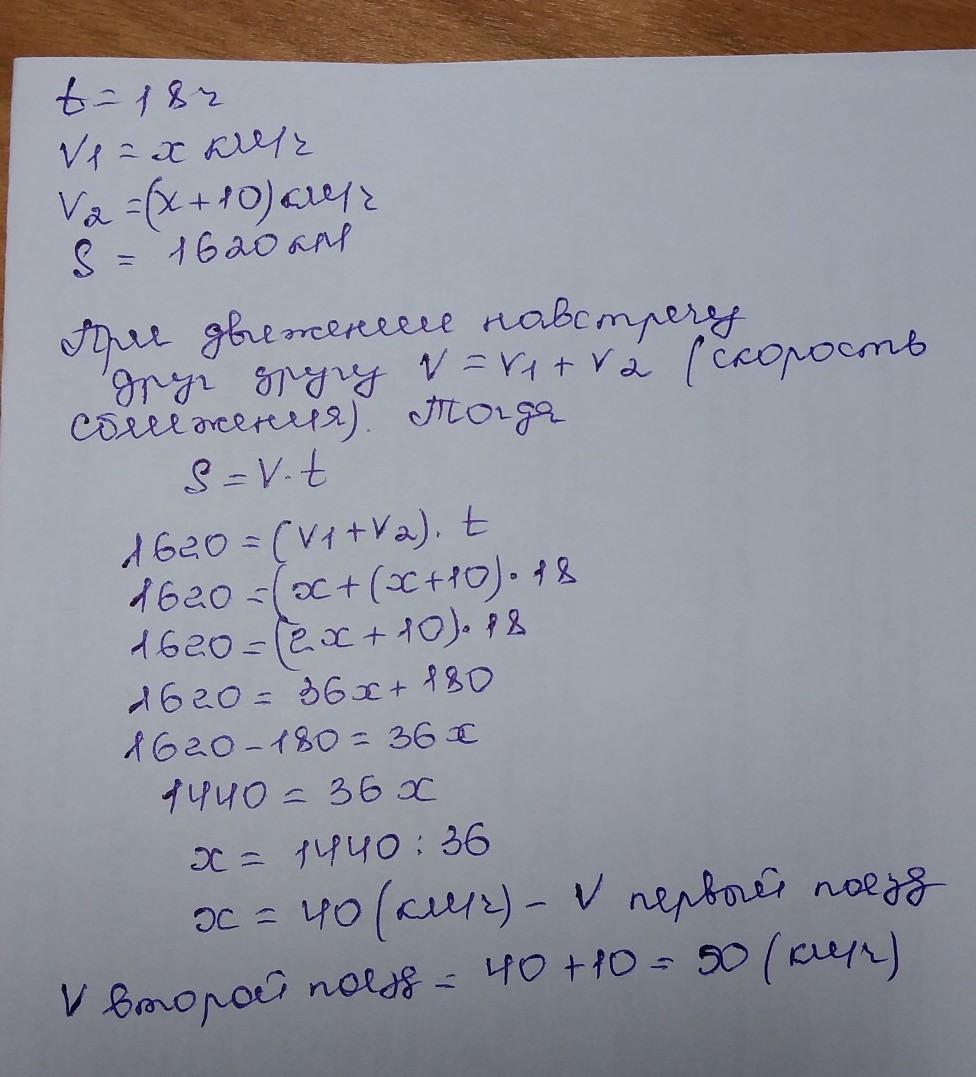 t = 18 ч
V1 = x км/ч
V2 = (x + 10) км/ч
S = 1620 км
При движение навстречу
друг другу V = V1 + V2 (скорость
сближения). Тогда
S = V · t
1620 = (V1 + V2) · t
1620 = (x + (x + 10) · 18
1620 = (2x + 10) · 18
1620 = 36x + 180
1620 - 180 = 36x
1440 = 36x
x = 1440 : 36
x = 40 (км/ч) - V первый поезд
V второй поезд = 40 + 10 = 50 (км/ч)